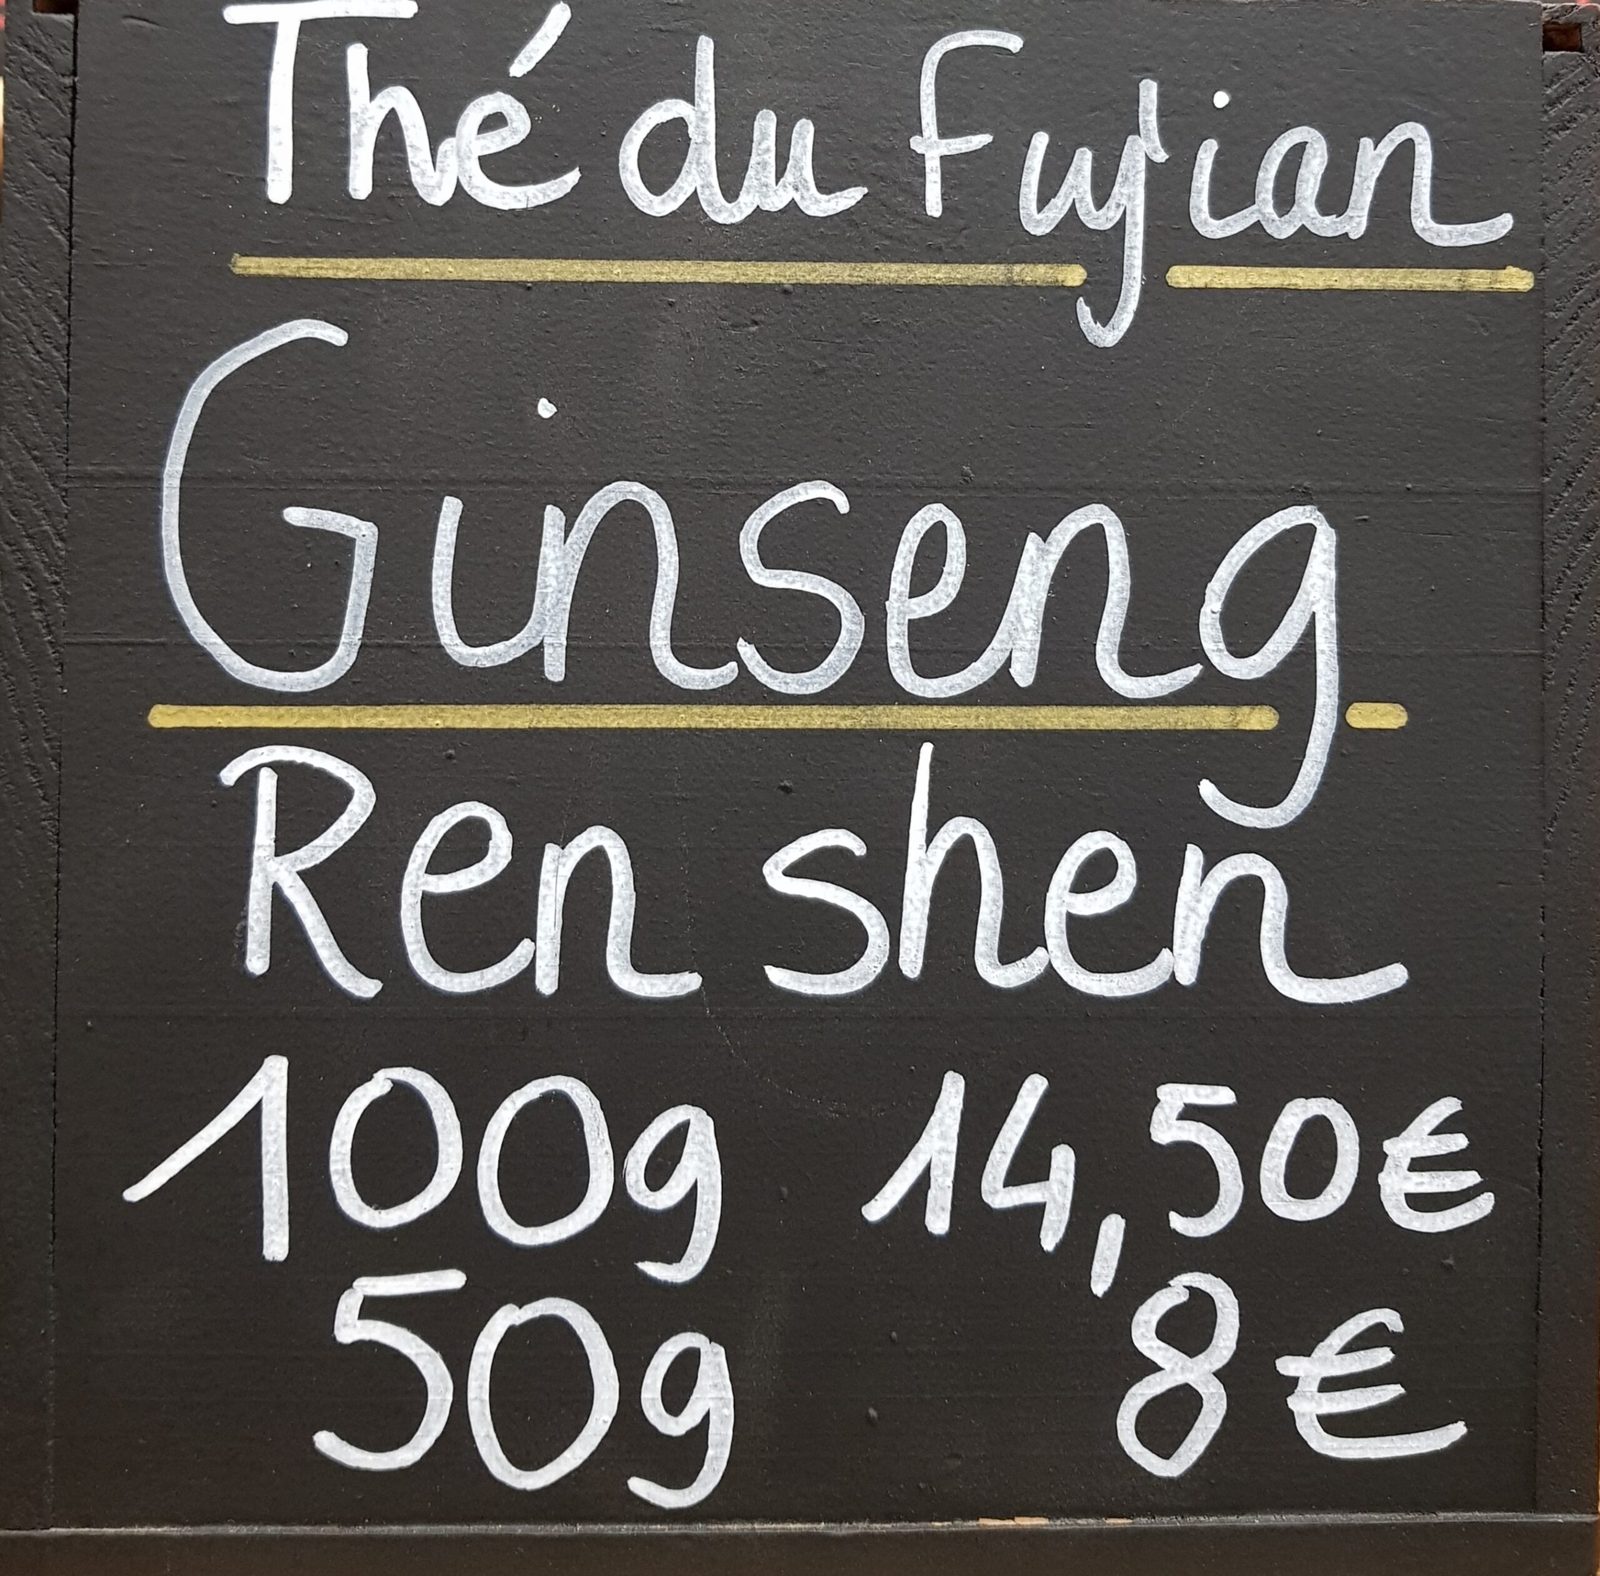 Thé du Fujian
Ginseng
Ren shen
100g 14,50€
50g 8€